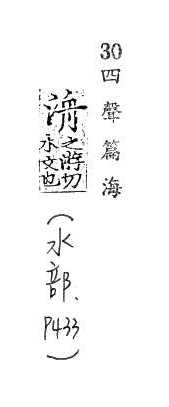 30四聲篇海
之切
水文也
(水部、P433)